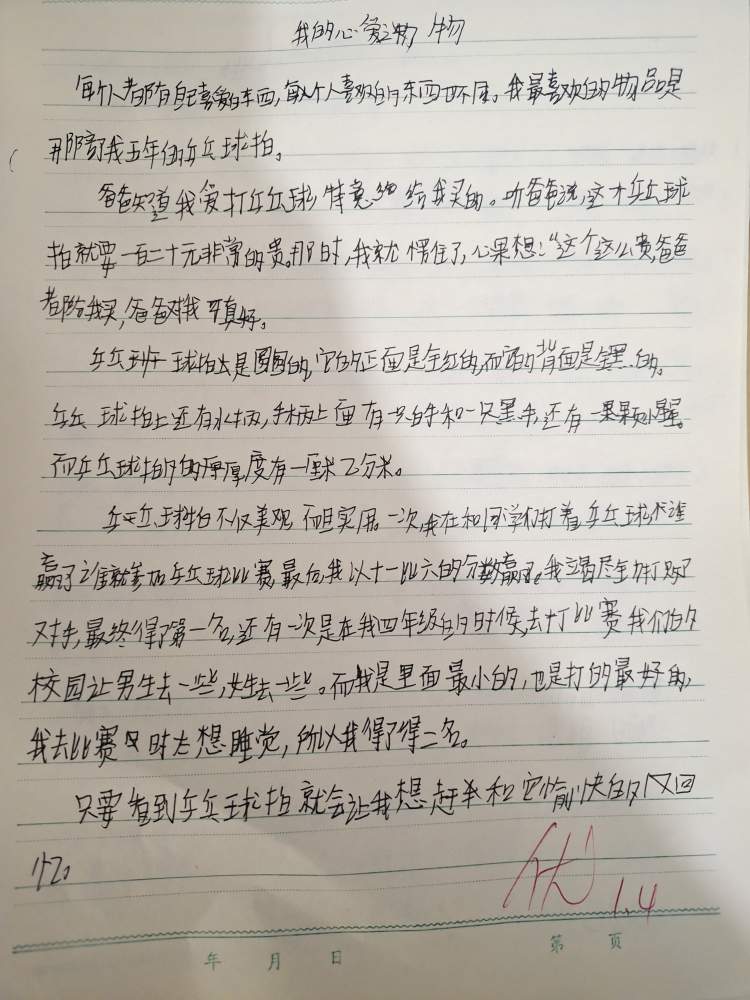 我的心爱之物
每个人都有自己喜爱的东西,每个人喜欢的东西也不同。我最喜欢的物品是
那陪了我五年的乒乓球拍。
爸爸知道我爱打乒乓球,特意给我买的。听爸爸说,这个乒乓球
拍就要一百二十元非常的贵。那时,我就愣住了,心里想:“这个这么贵,爸爸
都给我买,爸爸对我可真好。
乒乓球拍是圆圆的,它的正面是全红的,而它的背面是全黑的。
乒乓球拍上还有水柄,手柄上面有一只白手和一只黑手,还有一颗颗小星星。
而乒乓球拍的厚度有一厘米乙分米。
乒乓球拍不仅美观,而且实用。一次,我在和同学们打着乒乓球,谁
赢了谁就参加乒乓球比赛,最后,我以十一比六的分数赢了。我竭尽全力打败了
对手,最终得了第一名,还有一次是在我四年级的时候,去打比赛我们的
校园让男生去一些,女生去一些。而我是里面最小的,也是打的最好的,
我去比赛时太想睡觉,所以我得了得二名。
只要看到乒乓球拍就会让我想起我和它愉快的回
忆。
优
1.4
年 月 日
第 页